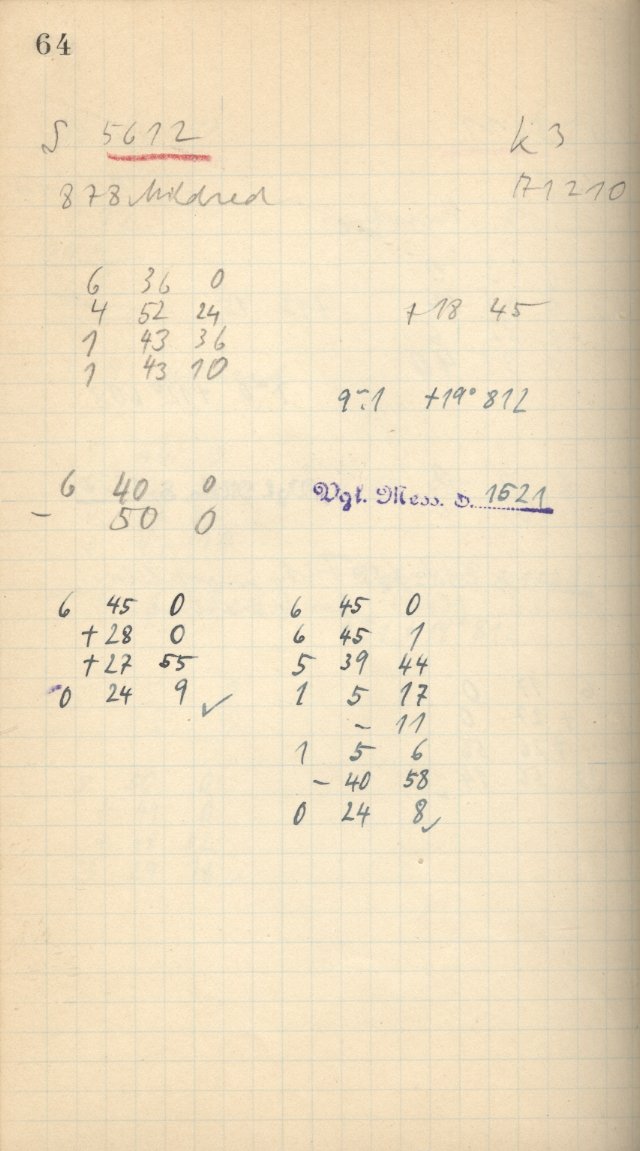 64
S 5612 k 3
878 Mildred 171210
6 36 0
4 52 24 +18 45
1 43 36
1 43 10
+19° 812
6 40 0 Vgl. Mess. S. 1521
- 50 0
6 45 0 6 45 0
+28 0 6 45 1
+27 55 5 39 44
0 24 9 ✓ 1 5 17
- 11
1 5 6
- 40 58
0 24 8 ✓